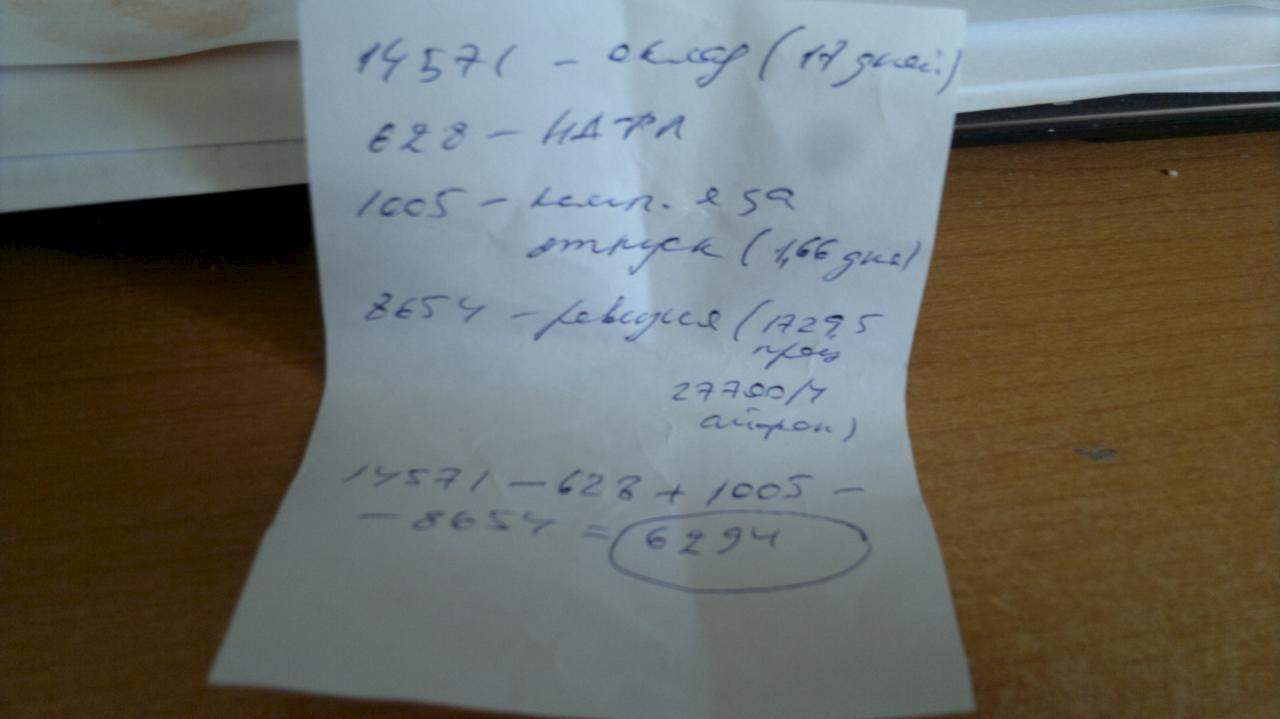 14571 - оклад (17 дней)
628 - НДФЛ
1005 - комп. я за
отпуск (1,66 дня)
8654 - ревизия (1729,5
прод
27700/4
айфон)
14571 - 628 + 1005 -
- 8654 = 6294